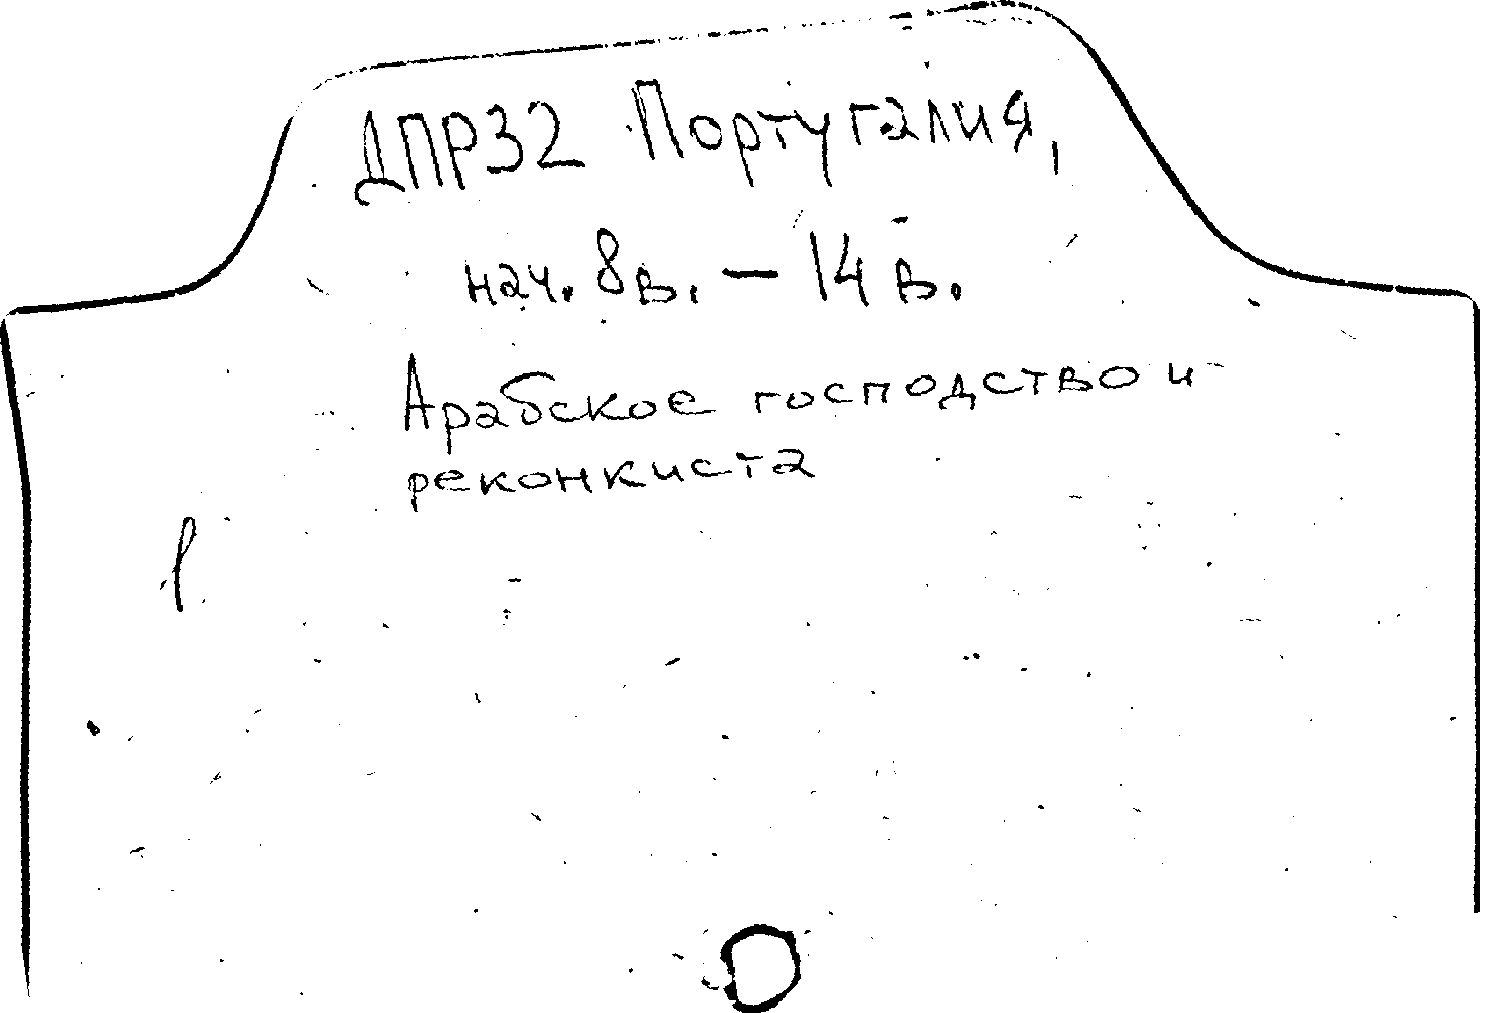 ДПР32 Португалия,
нач. 8в. – 14 в.
Арабское господство и
реконкиста